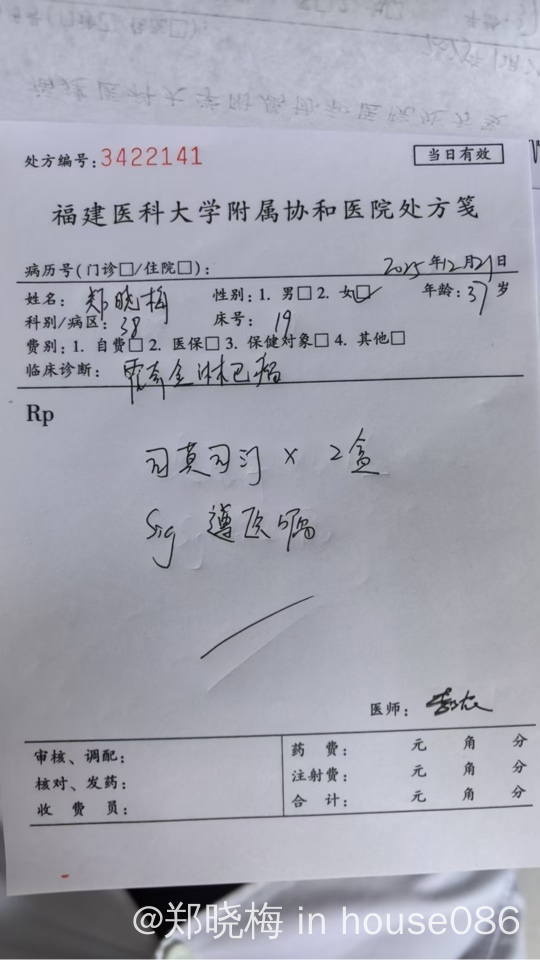 处方编号:3422141
当日有效
福建医科大学附属协和医院处方笺
病历号(门诊□/住院□): 2025年12月21日
姓名: 郑晓梅 性别: 1. 男□ 2. 女□ 年龄: 37岁
科别/病区: 38 床号: 19
费别: 1. 自费□ 2. 医保□ 3. 保健对象□ 4. 其他□
临床诊断: 霍奇金淋巴瘤
Rp
司莫司汀 × 2盒
Sig 遵医嘱
医师:
审核、调配: 药 费: 元 角 分
核对、发药: 注射费: 元 角 分
收 费 员: 合 计: 元 角 分
@郑晓梅 in house086